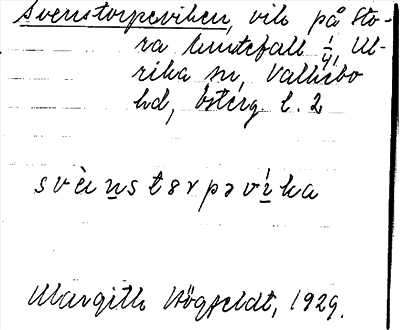 Svenstorpeviken, vik på Sto-
ra Emtefall 1/4, Ul-
rika sn, Valkebo
hd, Österg. l. 2
svèn̲stərpəvi̲ka
Margith Högfeldt, 1929.